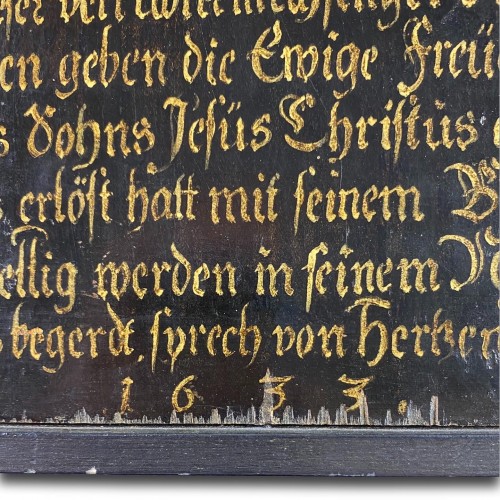 en geben die Ewige Freü
s Sohns Jesüs Christüs
erlöst hatt mit seinem
ellig werden in seinem
begerdt, sprech von Hertzen
1 6 3 3 .